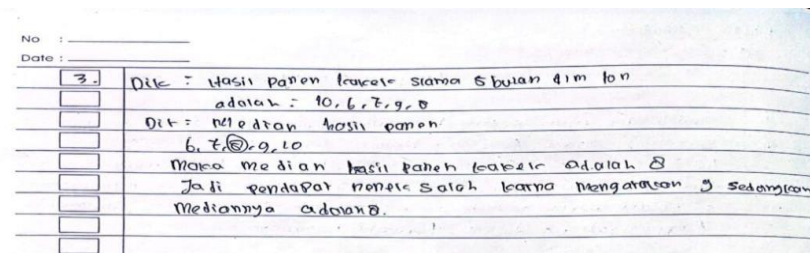 No :
Date :
3. Dik : Hasil panen kakek slama 5 bulan dlm ton
adalah : 10, 6, 7, 9, 8
Dit : Median hasil panen
6, 7, 8, 9, 10
Maka median hasil panen kakek adalah 8
Jadi pendapat nenek salah karna mengatakan 9 sedangkan
Mediannya adalah 8.